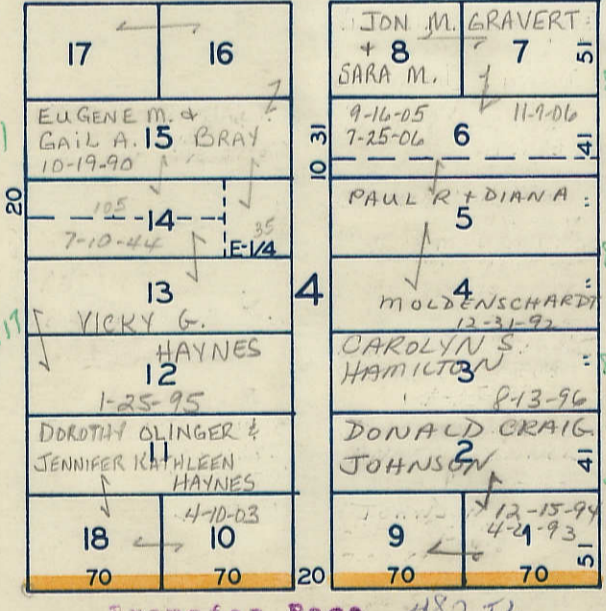 17 16
EUGENE M. &
GAIL A. 15 BRAY
10-19-90
20
105
14
7-10-44
35
E-1/4
13
VICKY G.
HAYNES
12
1-25-95
DOROTHY OLINGER &
11
JENNIFER KATHLEEN
HAYNES
4-10-03
18 10
70 70
4
20
JON M. GRAVERT
& 8 7 51
SARA M.
9-16-05 11-9-06
7-25-06 6
31
10
41
PAUL R & DIANA "
5
4 "
MOLDENSCHARDT
12-31-92
CAROLYN S.
HAMILTON "
3
8-13-96
DONALD CRAIG
2
JOHNSON 41
12-15-94
9 1
51
70 70